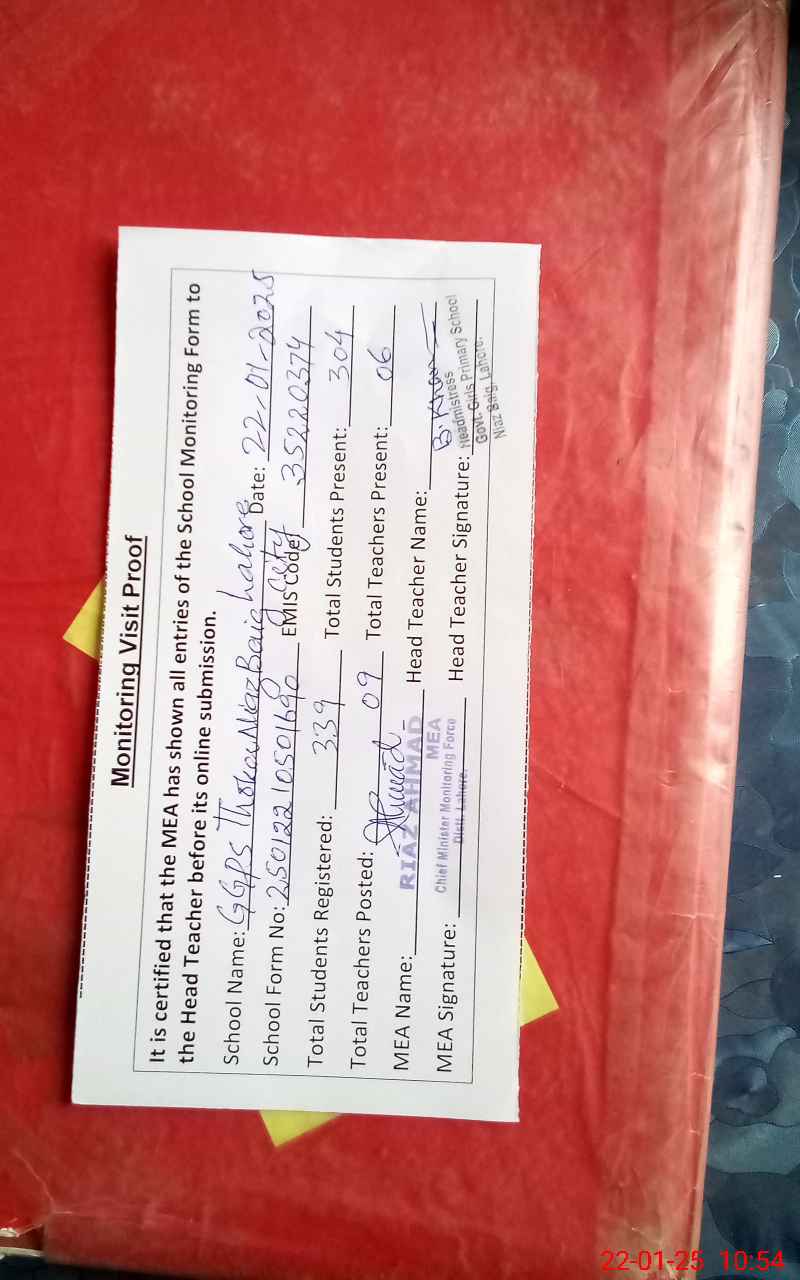 Monitoring Visit Proof
It is certified that the MEA has shown all entries of the School Monitoring Form to
the Head Teacher before its online submission.
School Name: GGPS Thokar Niaz Baig Lahore Date: 22-01-2025
City
School Form No: 25012210501690 EMIS Code: 35220374
Total Students Registered: 339 Total Students Present: 304
Total Teachers Posted: 09 Total Teachers Present: 06
Ahmad
MEA Name: RIAZ AHMAD Head Teacher Name: B. Khan
MEA
Headmistress
Chief Minister Monitoring Force
Distt. Lahore.
MEA Signature: Head Teacher Signature:
Govt. Girls Primary School
Niaz Baig, Lahore.
22-01-25 10:54